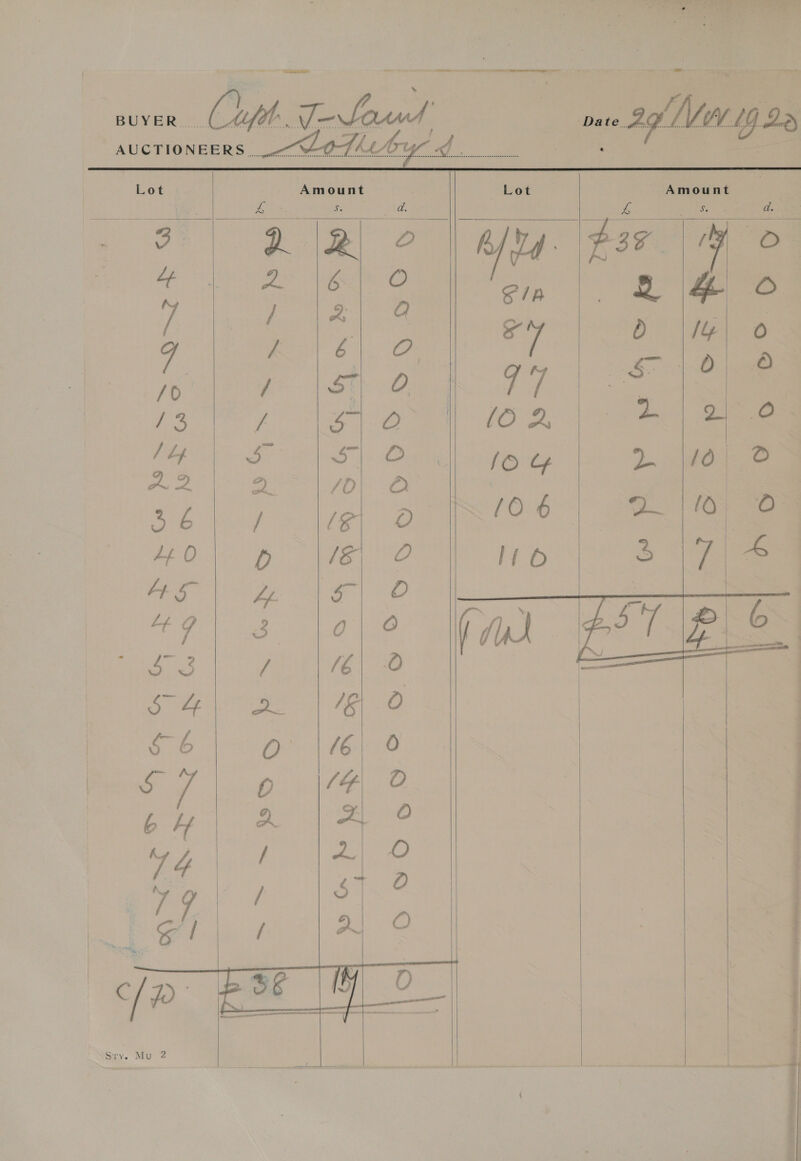 BUYER Capt. J-Saund Date 29 Nov 1923
AUCTIONEERS Sotheby's.
Lot Amount
£ s. d.
3 2 2 0
4 2 6 0
7 1 2 0
9 1 6 0
10 1 5 0
13 1 5 0
14 5 5 0
22 2 10 0
36 1 18 0
40 0 18 0
45 4 5 0
49 3 0 0
53 1 16 0
54 2 18 0
56 0 16 0
57 0 14 0
64 2 2 0
74 1 2 0
79 1 5 0
81 1 2 0
c/d £38 17 0
Lot Amount
£ s. d.
£38 17 0
2 4 0
87 0 14 0
97 5 0 0
102 2 2 0
104 2 10 0
106 2 10 0
110 3 7 6
£57 4 6
Srv. Mu 2